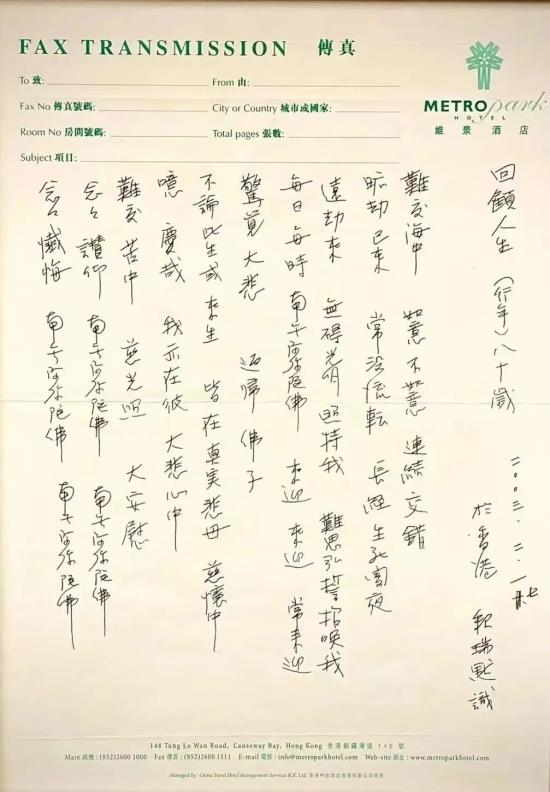 FAX TRANSMISSION 傳真
To 致:
From 由:
Fax No 傳真號碼:
City or Country 城市或國家:
Room No 房間號碼:
Total pages 張數:
Subject 項目:
METROpark
HOTEL
維景酒店
回顧人生 (行年) 八十歲
二〇〇三.二.一
於香港 釈瑞默識
難度海中 如意不如意 連結交錯
曠劫已來 常没流転 長經生死寄夜
遠劫來 無碍光明 照持我 難思弘誓招喚我
每日每時 南无阿弥陀佛 來迎 來迎 常来迎
驚覚大悲 返帰佛子
不論此生或來生 皆在真実悲母 慈懐中
噫 慶哉 我亦在彼 大悲心中
難度苦中 慈光照 大安慰
念々讃仰 南无阿弥陀佛 南无阿弥陀佛
念々懺悔 南无阿弥陀佛 南无阿弥陀佛
148 Tung Lo Wan Road, Causeway Bay, Hong Kong 香港銅鑼灣道 148 號
Main 總機 : (852)2600 1000 Fax 傳真 : (852)2600 1111 E-mail 電郵 : info@metroparkhotel.com Web-site 網址 : www.metroparkhotel.com
Managed by China Travel Hotel Management Services H.K. Ltd.